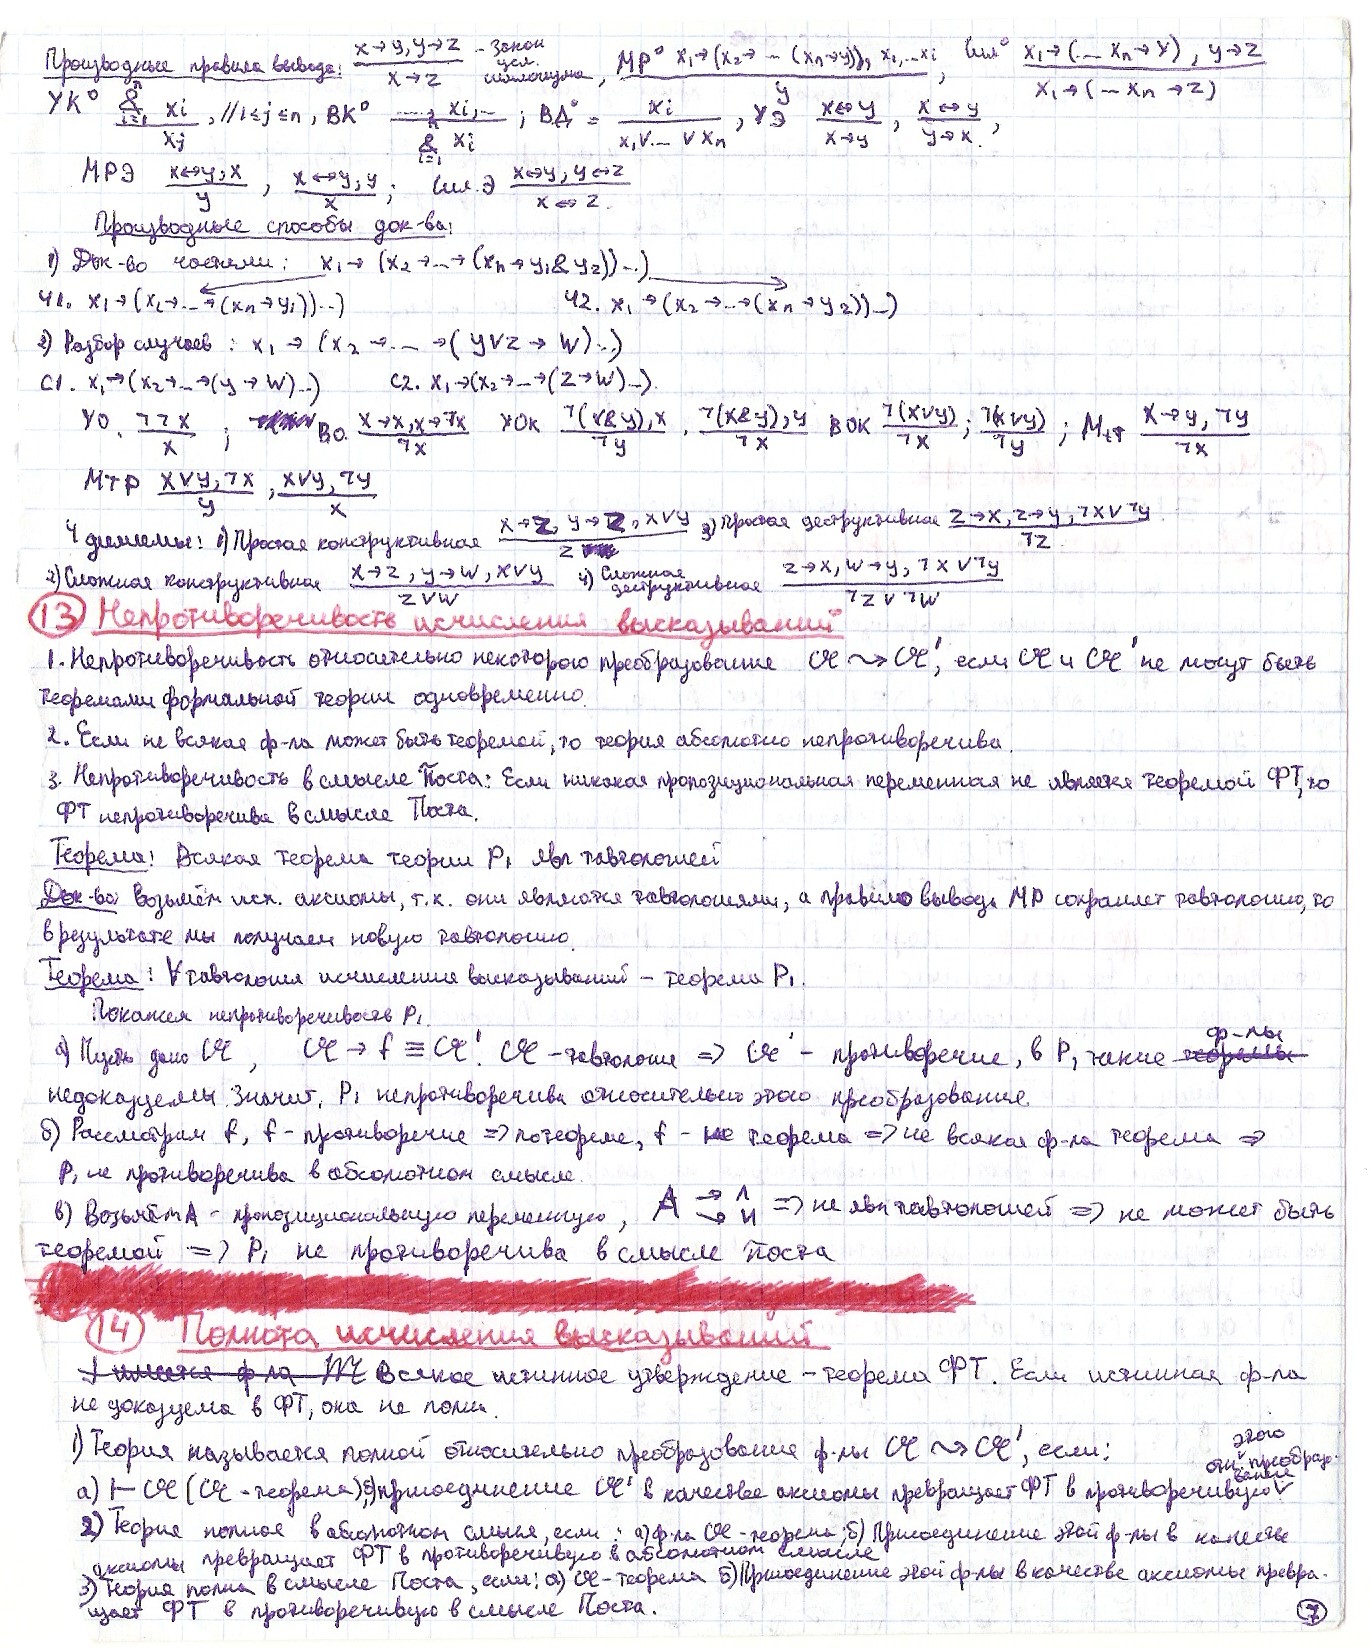 Производные правила вывода: x→y, y→z / x→z – закон усл. силлогизма, МР° x₁→(x₂→...(xₙ→y)), x₁,...xᵢ / y, Сил° x₁→(...xₙ→y), y→z / x₁→(...xₙ→z)
УК° &ⁿᵢ₌₁ xᵢ / xⱼ, //1≤j≤n, ВК° ..., xᵢ,... / &ⁿᵢ₌₁ xᵢ ; ВД° = xᵢ / x₁∨...∨xₙ, УЭ x↔y / x→y, x↔y / y→x,
МРЭ x↔y, x / y, x↔y, y / x ; Сил.Э x↔y, y↔z / x↔z.
Производные способы док-ва:
1) Док-во частями: x₁→(x₂→...→(xₙ→y₁&y₂))...)
Ч1. x₁→(x₂→...→(xₙ→y₁))...) Ч2. x₁→(x₂→...→(xₙ→y₂))...)
2) Разбор случаев: x₁→(x₂→...→(y∨z→W)...)
С1. x₁→(x₂→...→(y→W)...) С2. x₁→(x₂→...→(z→W)...)
УО. ¬¬x / x ; ВО. x→x, x→¬x / ¬x УОК ¬(x&y), x / ¬y, ¬(x&y), y / ¬x ВОК ¬(x∨y) / ¬x ; ¬(x∨y) / ¬y ; Мtt x→y, ¬y / ¬x
МТР x∨y, ¬x / y ; x∨y, ¬y / x
4 дилеммы: 1) Простая конструктивная x→z, y→z, x∨y / z 3) Простая деструктивная z→x, z→y, ¬x∨¬y / ¬z
2) Сложная конструктивная x→z, y→w, x∨y / z∨w 4) Сложная деструктивная z→x, w→y, ¬x∨¬y / ¬z∨¬w
13 Непротиворечивость исчисления высказываний
1. Непротиворечивость относительно некоторого преобразование 𝔄 ⤳ 𝔄', если 𝔄 и 𝔄' не могут быть
теоремами формальной теории одновременно.
2. Если не всякая ф-ла может быть теоремой, то теория абсолютно непротиворечива.
3. Непротиворечивость в смысле Поста: Если никакая пропозициональная переменная не является теоремой ФТ, то
ФТ непротиворечива в смысле Поста.
Теорема: Всякая теорема теории P₁ явл тавтологией
Док-во: Возьмём исх. аксиомы, т.к. они являются тавтологиями, а правило вывода МР сохраняет тавтологию, то
в результате мы получаем новую тавтологию.
Теорема: ∀ тавтология исчисления высказываний – теорема P₁.
Покажем непротиворечивость P₁.
а) Пусть дано 𝔄, 𝔄→f ≡ 𝔄'. 𝔄 – тавтология => 𝔄' – противоречие, в P₁ такие теоремы ф-лы
недоказуемы. Значит, P₁ непротиворечива относительно этого преобразования.
б) Рассмотрим f, f – противоречие => по теореме, f – не теорема => не всякая ф-ла теорема =>
P₁ не противоречива в абсолютном смысле.
в) Возьмём A – пропозициональную переменную, A → Л → И => не явл тавтологией => не может быть
теоремой => P₁ не противоречива в смысле Поста
14 Полнота исчисления высказываний
имеется ф-ла Всякое истинное утверждение – теорема ФТ. Если истинная ф-ла
не доказуема в ФТ, она не полна.
1) Теория называется полной относительно преобразование ф-лы 𝔄 ⤳ 𝔄', если:
а) ⊢ 𝔄 (𝔄 – теорема); б) присоединение 𝔄' в качестве аксиомы превращает ФТ в противоречивую отн. этого преобразования
2) Теория полная в абсолютном смысле, если: а) ф-ла 𝔄 – теорема; б) Присоединение этой ф-лы в качестве
аксиомы превращает ФТ в противоречивую в абсолютном смысле
3) Теория полна в смысле Поста, если: а) 𝔄 – теорема б) Присоединение этой ф-лы в качестве аксиомы превра-
щает ФТ в противоречивую в смысле Поста.
7